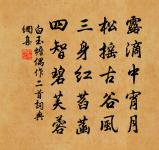 露滴中宵月
松搖古谷風
三身紅菡萏
四智碧芙蓉
白玉蟾偶作二首詞典
網集